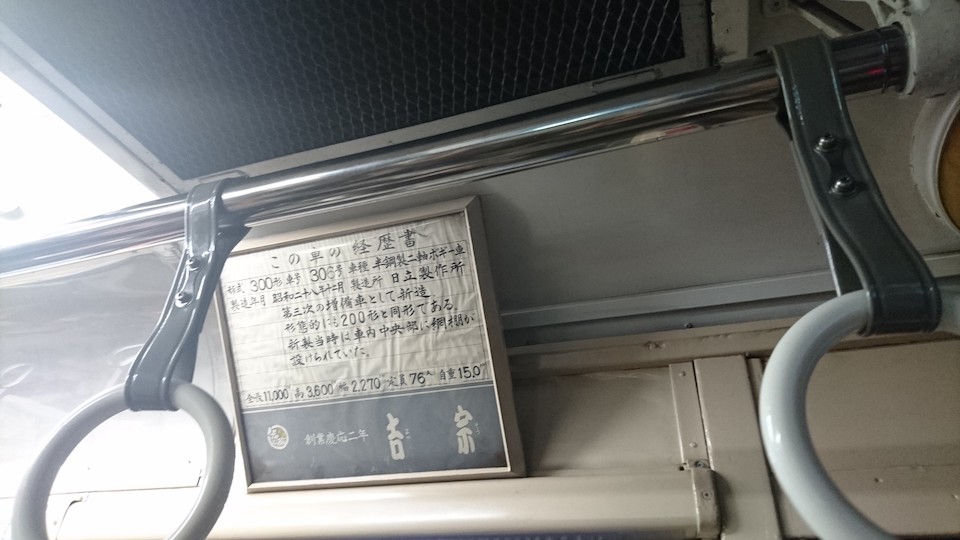 この車の経歴書
形式 300形 車号 306号 車種 半鋼製二軸ボギー車
製造年月 昭和二十八年十二月 製造所 日立製作所
第三次の増備車として新造
形態的にも200形と同形である
新製当時は車内中央部に網棚が
設けられていた。
全長11,000 高3,600 幅2,270 定員76人 自重15.0t
創業慶応二年 吉宗